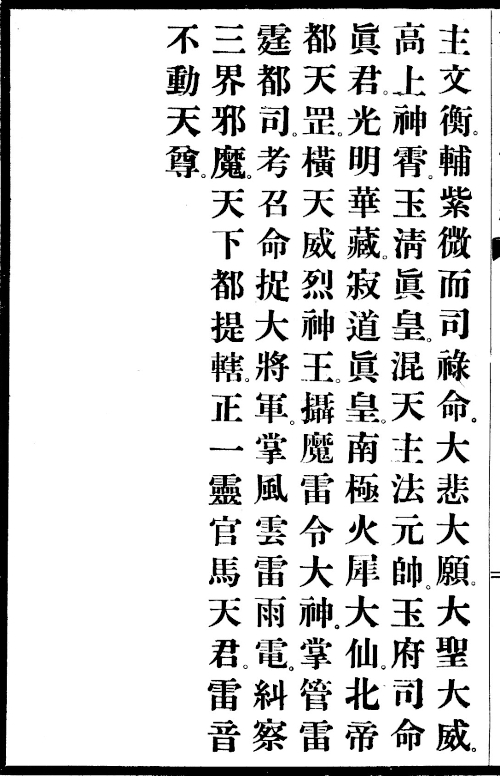 主文衡。輔紫微而司祿命。大悲大願。大聖大威。
高上神霄。玉清眞皇。混天主法元帥。玉府司命
眞君。光明華藏。寂道眞皇。南極火犀大仙。北帝
都天罡。橫天威烈神王。攝魔雷令大神。掌管雷
霆都司。考召命捉大將軍。掌風雲雷雨電。糾察
三界邪魔。天下都提轄。正一靈官馬天君。雷音
不動天尊。